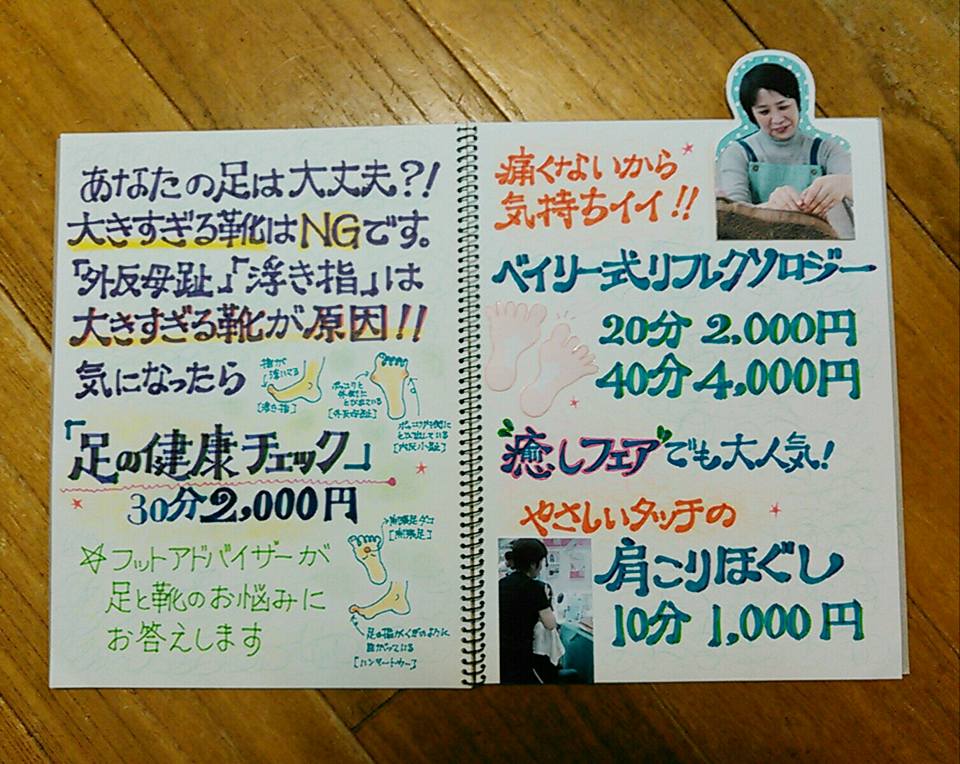 あなたの足は大丈夫?!
大きすぎる靴はNGです。
「外反母趾」「浮き指」は
大きすぎる靴が原因!!
気になったら
指が
浮いてる
[浮き指]
ポッコリと
外側に
とび出ている
[外反母趾]
ポッコリ内側に
とび出している
[内反小趾]
「足の健康チェック」
30分2,000円
無痛足ダコ
☆フットアドバイザーが
足と靴のお悩みに
お答えします
足の指がくぎのように
曲がっている
[ハンマートゥー]
痛くないから
気持ちイイ!!
ベイリー式リフレクソロジー
20分 2,000円
40分 4,000円
"癒しフェア"でも大人気!
やさしいタッチの
肩こりほぐし
10分 1,000円